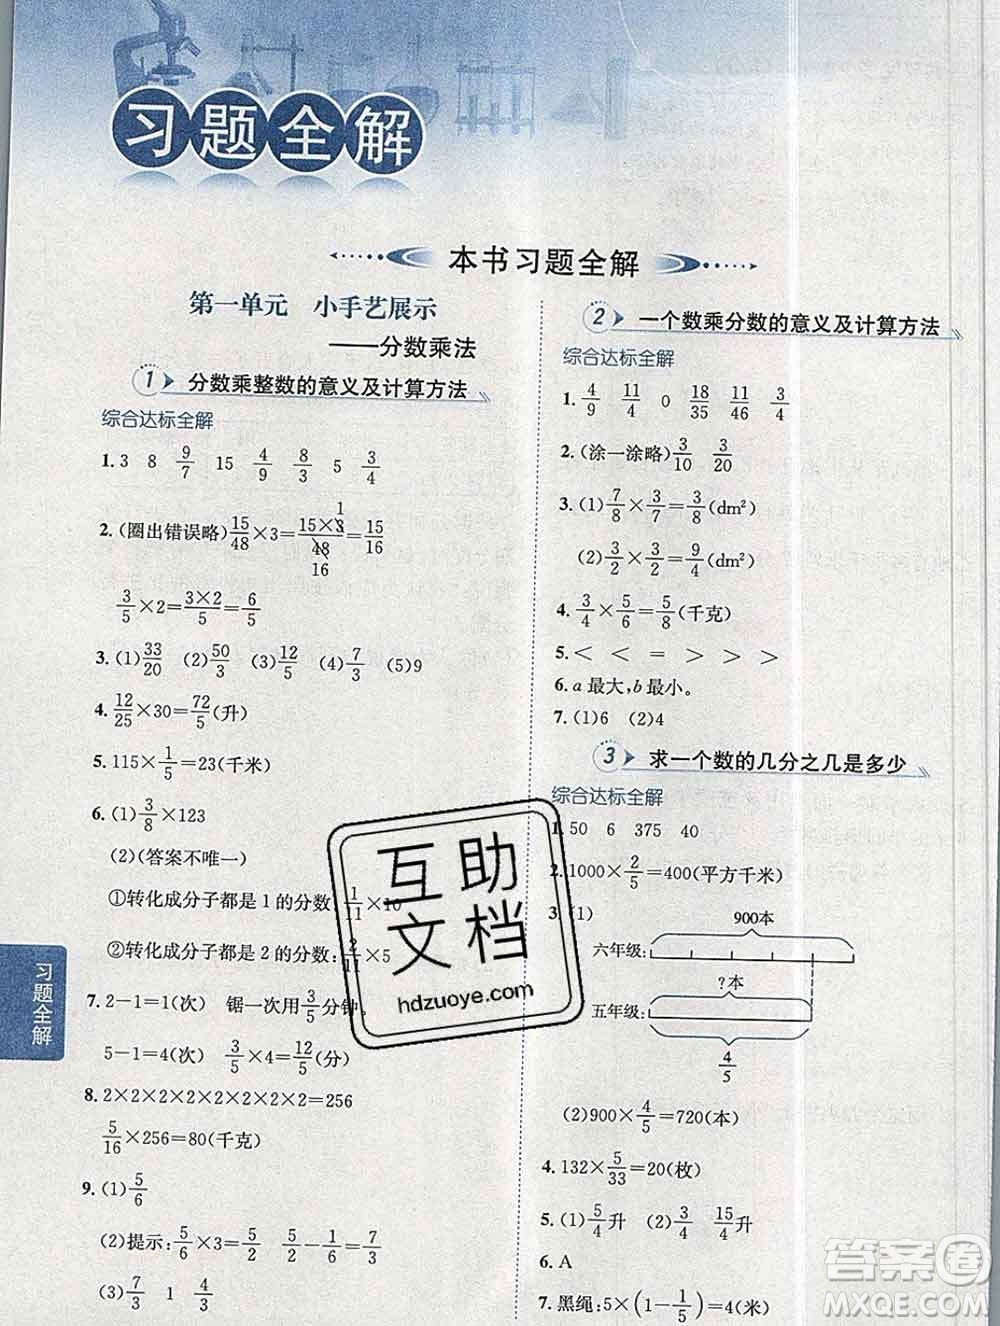 习题全解
本书习题全解
第一单元 小手艺展示
——分数乘法
1 分数乘整数的意义及计算方法
综合达标全解
1. 3 8 9/7 15 4/9 8/3 5 3/4
2. (圈出错误略) 15/48×3=15×3/48=15/16
1
16
3/5×2=3×2/5=6/5
3. (1)33/20 (2)50/3 (3)12/5 (4)7/3 (5)9
4. 12/25×30=72/5(升)
5. 115×1/5=23(千米)
6. (1)3/8×123
(2)(答案不唯一)
①转化成分子都是1的分数:1/11×10
②转化成分子都是2的分数:2/11×5
7. 2-1=1(次) 锯一次用3/5分钟,
5-1=4(次) 3/5×4=12/5(分)
8. 2×2×2×2×2×2×2×2=256
5/16×256=80(千克)
9. (1)5/6
(2)提示:5/6×3=5/2 5/2-1/6=7/3
(3)7/3 1 4/5
2 一个数乘分数的意义及计算方法
综合达标全解
1. 4/9 11/4 0 18/35 11/46 3/4
2. (涂一涂略)3/10 3/20
3. (1)7/8×3/7=3/8(dm²)
(2)3/2×3/2=9/4(dm²)
4. 3/4×5/6=5/8(千克)
5. < < = > > >
6. a最大,b最小。
7. (1)6 (2)4
3 求一个数的几分之几是多少
综合达标全解
1. 50 6 375 40
2. 1000×2/5=400(平方千米)
3. (1)
900本
六年级:
?本
五年级:
4/5
(2)900×4/5=720(本)
4. 132×5/33=20(枚)
5. (1)5/4升 (2)3/4 15/4升
6. A
7. 黑绳:5×(1-1/5)=4(米)
习题全解
互助
文档
hdzuoye.com
答案圈
MXQE.COM